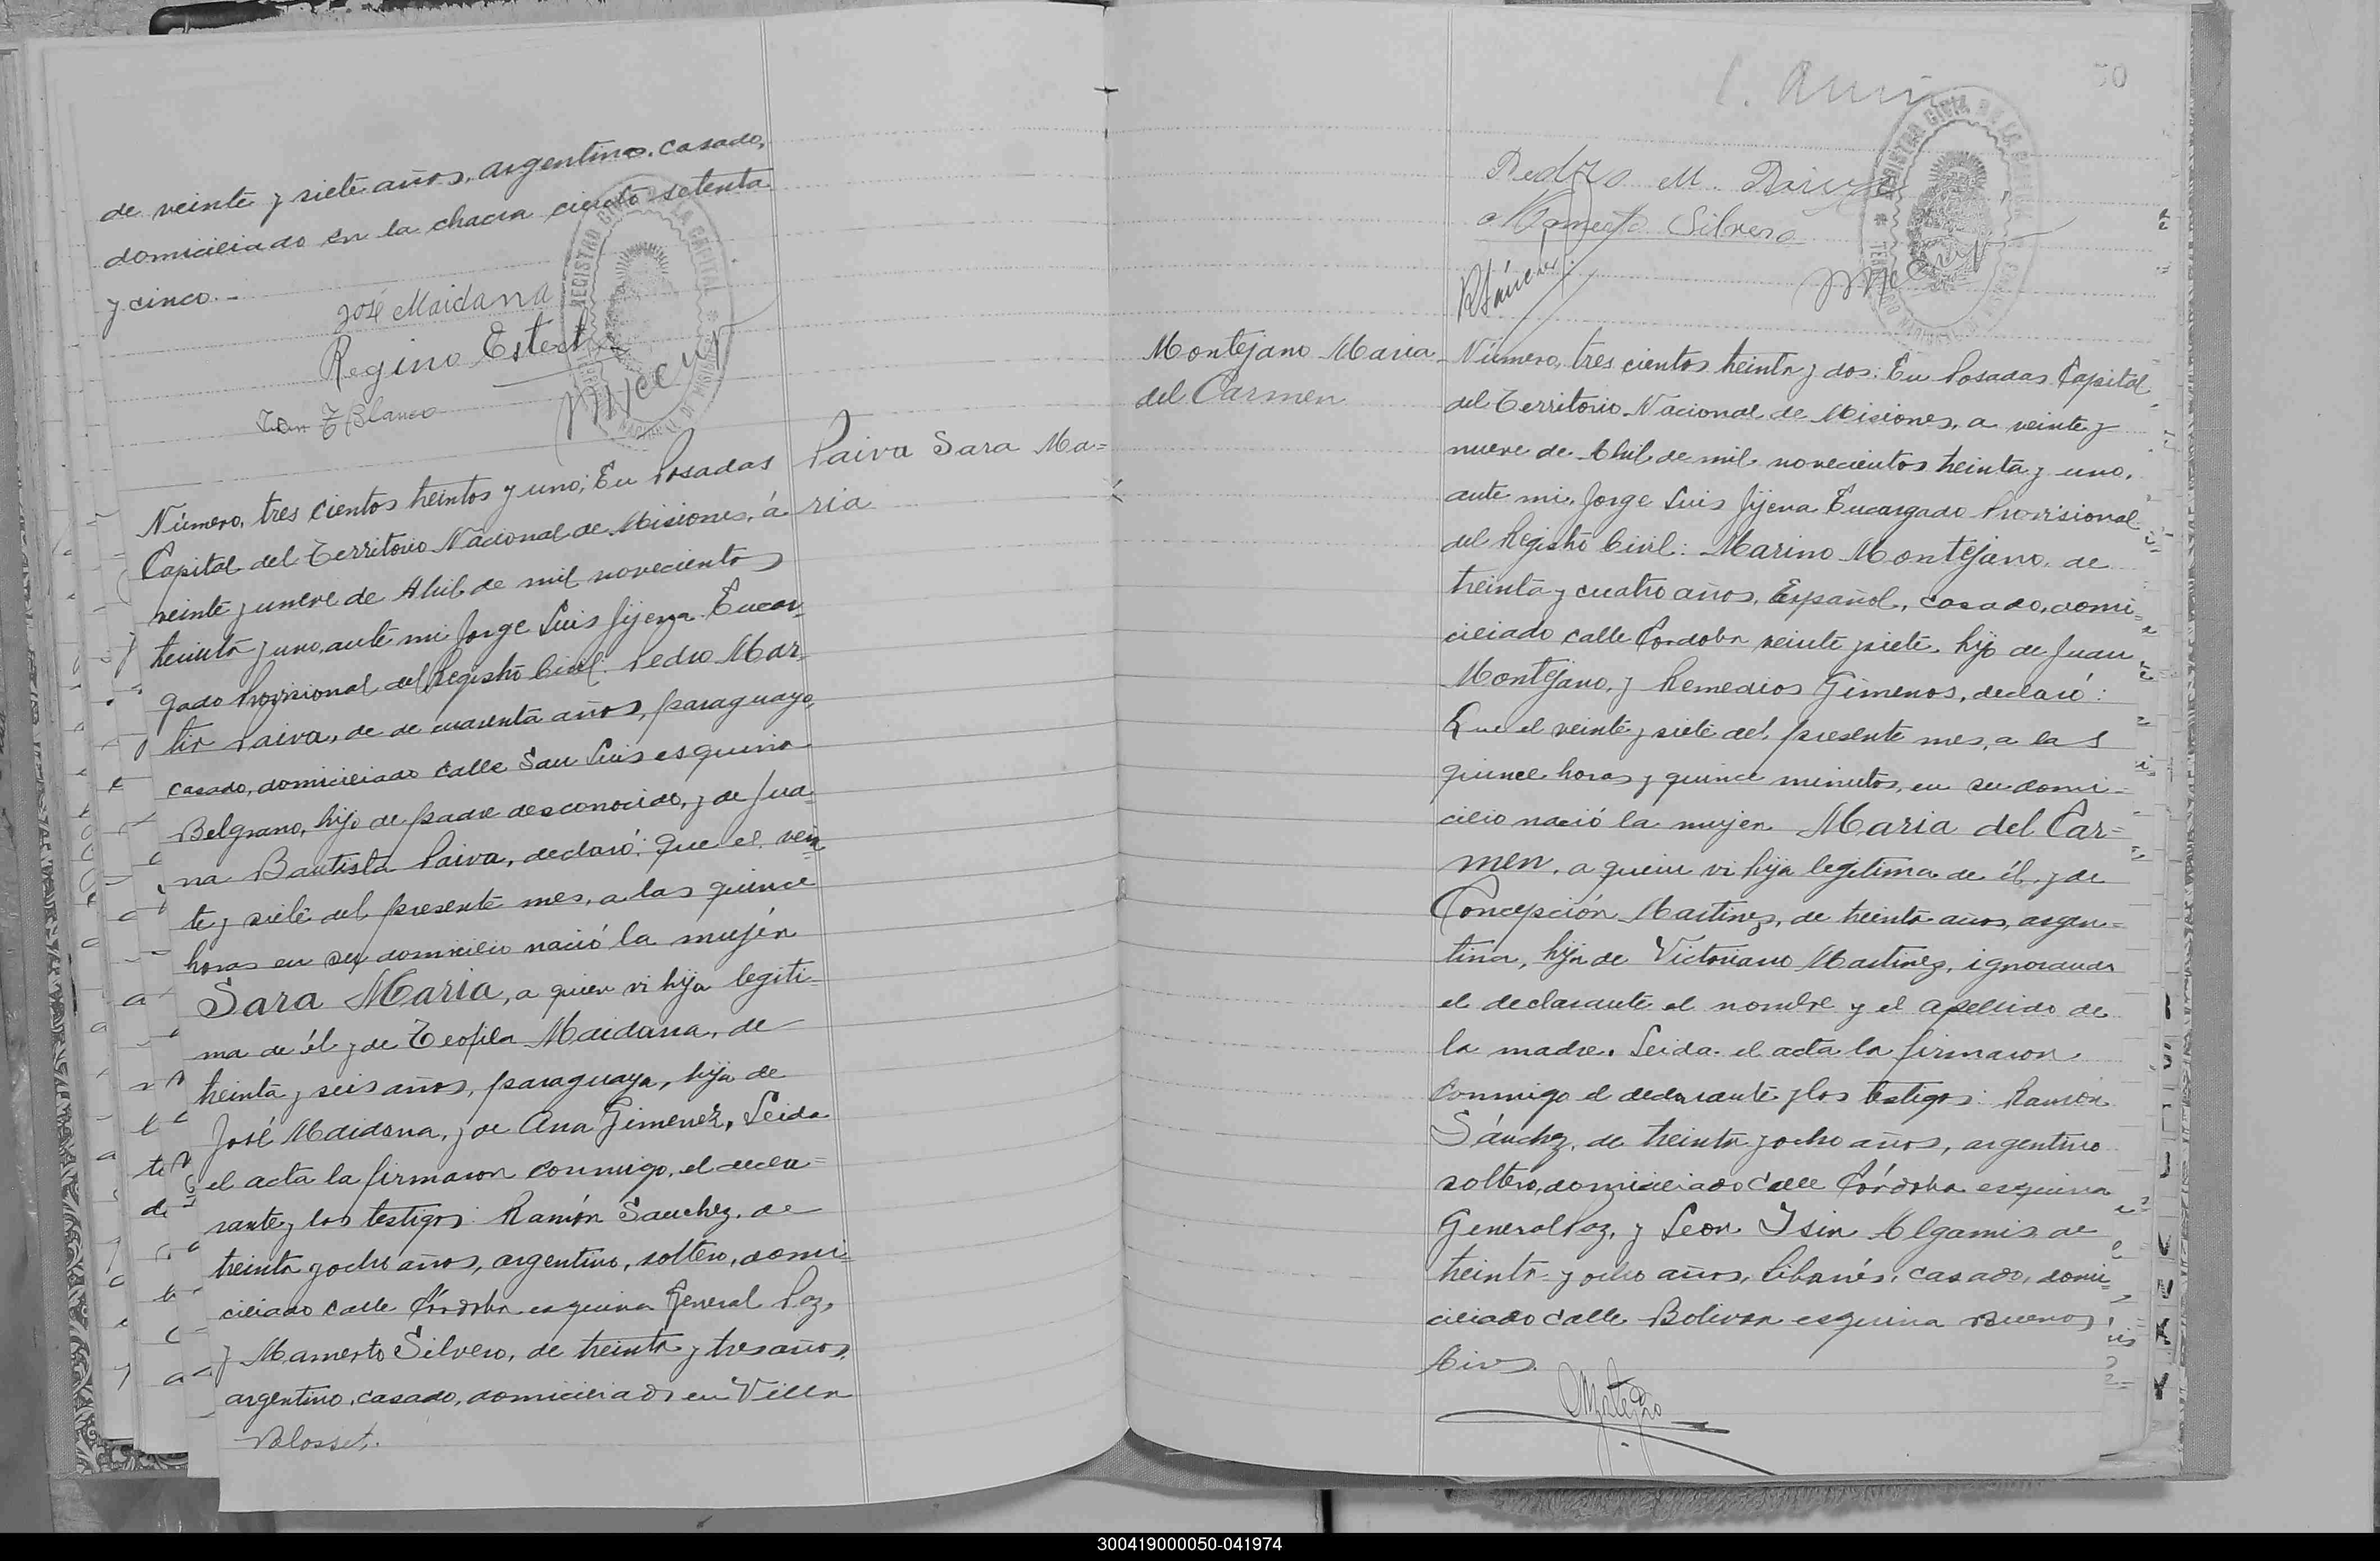 de veinte y siete años, argentino, casado,
domiciliado en la chacra ciento setenta
y cinco.-
José Maidana
Regino
Blanco
REGISTRO CIVIL DE LA CAPITAL
Paiva Sara Ma=
ria
Número, tres cientos treintos y uno; En Posadas
Capital del Territorio Nacional de Misiones, á
veinte y nueve de Abril de mil novecientos
treinta y uno, ante mi Jorge Luis Jijena Encar-
gado Provisional del Registro Civil: Pedro Mar-
tir Paiva, de de cuarenta años, paraguayo,
casado, domiciliado calle San Luis esquina
Belgrano, hijo de padre desconocido, y de Jua-
na Bautista Paiva, declaró: que el vein
te y siete del presente mes, a las quince
horas en su domicilio nació la mujer
Sara Maria, a quien vi hija legiti-
ma de él y de Teofila Maidana, de
treinta y seis años, paraguaya, hija de
José Maidana, y de Ana Gimenez, Leida
el acta la firmaron conmigo, el decla=
rante y los testigos: Ramón Sanchez, de
treinta y ocho años, argentino, soltero, domi-
ciliado calle Córdoba esquina General Paz,
y Mamerto Silvero, de treinta y tres años,
argentino, casado, domiciliado en Villa
Blosset.
50
Pedro M. Paiva
Mamerto Silvero
RSánchez
REGISTRO CIVIL DE LA CAPITAL
Montejano Maria
del Carmen
Número, tres cientos treinta y dos: En Posadas Capital
del Territorio Nacional de Misiones, a veinte y
nueve de Abril de mil novecientos treinta y uno,
ante mi, Jorge Luis Jijena Encargado Provisional
del Registro Civil: Marino Montejano, de
treinta y cuatro años, Español, casado, domi-
ciliado calle Cordoba veinte y siete, hijo de Juan
Montejano, y Remedios Gimenos, declaró:
Que el veinte y siete del presente mes, a las
quince horas y quince minutos, en su domi-
cilio nació la mujer Maria del Car=
men, a quien vi hija legitima de él, y de
Concepción Martinez, de treinta años, argen-
tina, hija de Victoriano Martinez, ignorando
el declarante el nombre y el apellido de
la madre. Leida el acta la firmaron
conmigo el declarante y los testigos: Ramón
Sánchez, de treinta y ocho años, argentino
soltero, domiciliado calle Córdoba esquina
General Paz, y Leon Isin Algamis de
treinta y ocho años, Libanés, casado, domi-
ciliado calle Bolivar esquina Buenos
Aires.
300419000050-041974